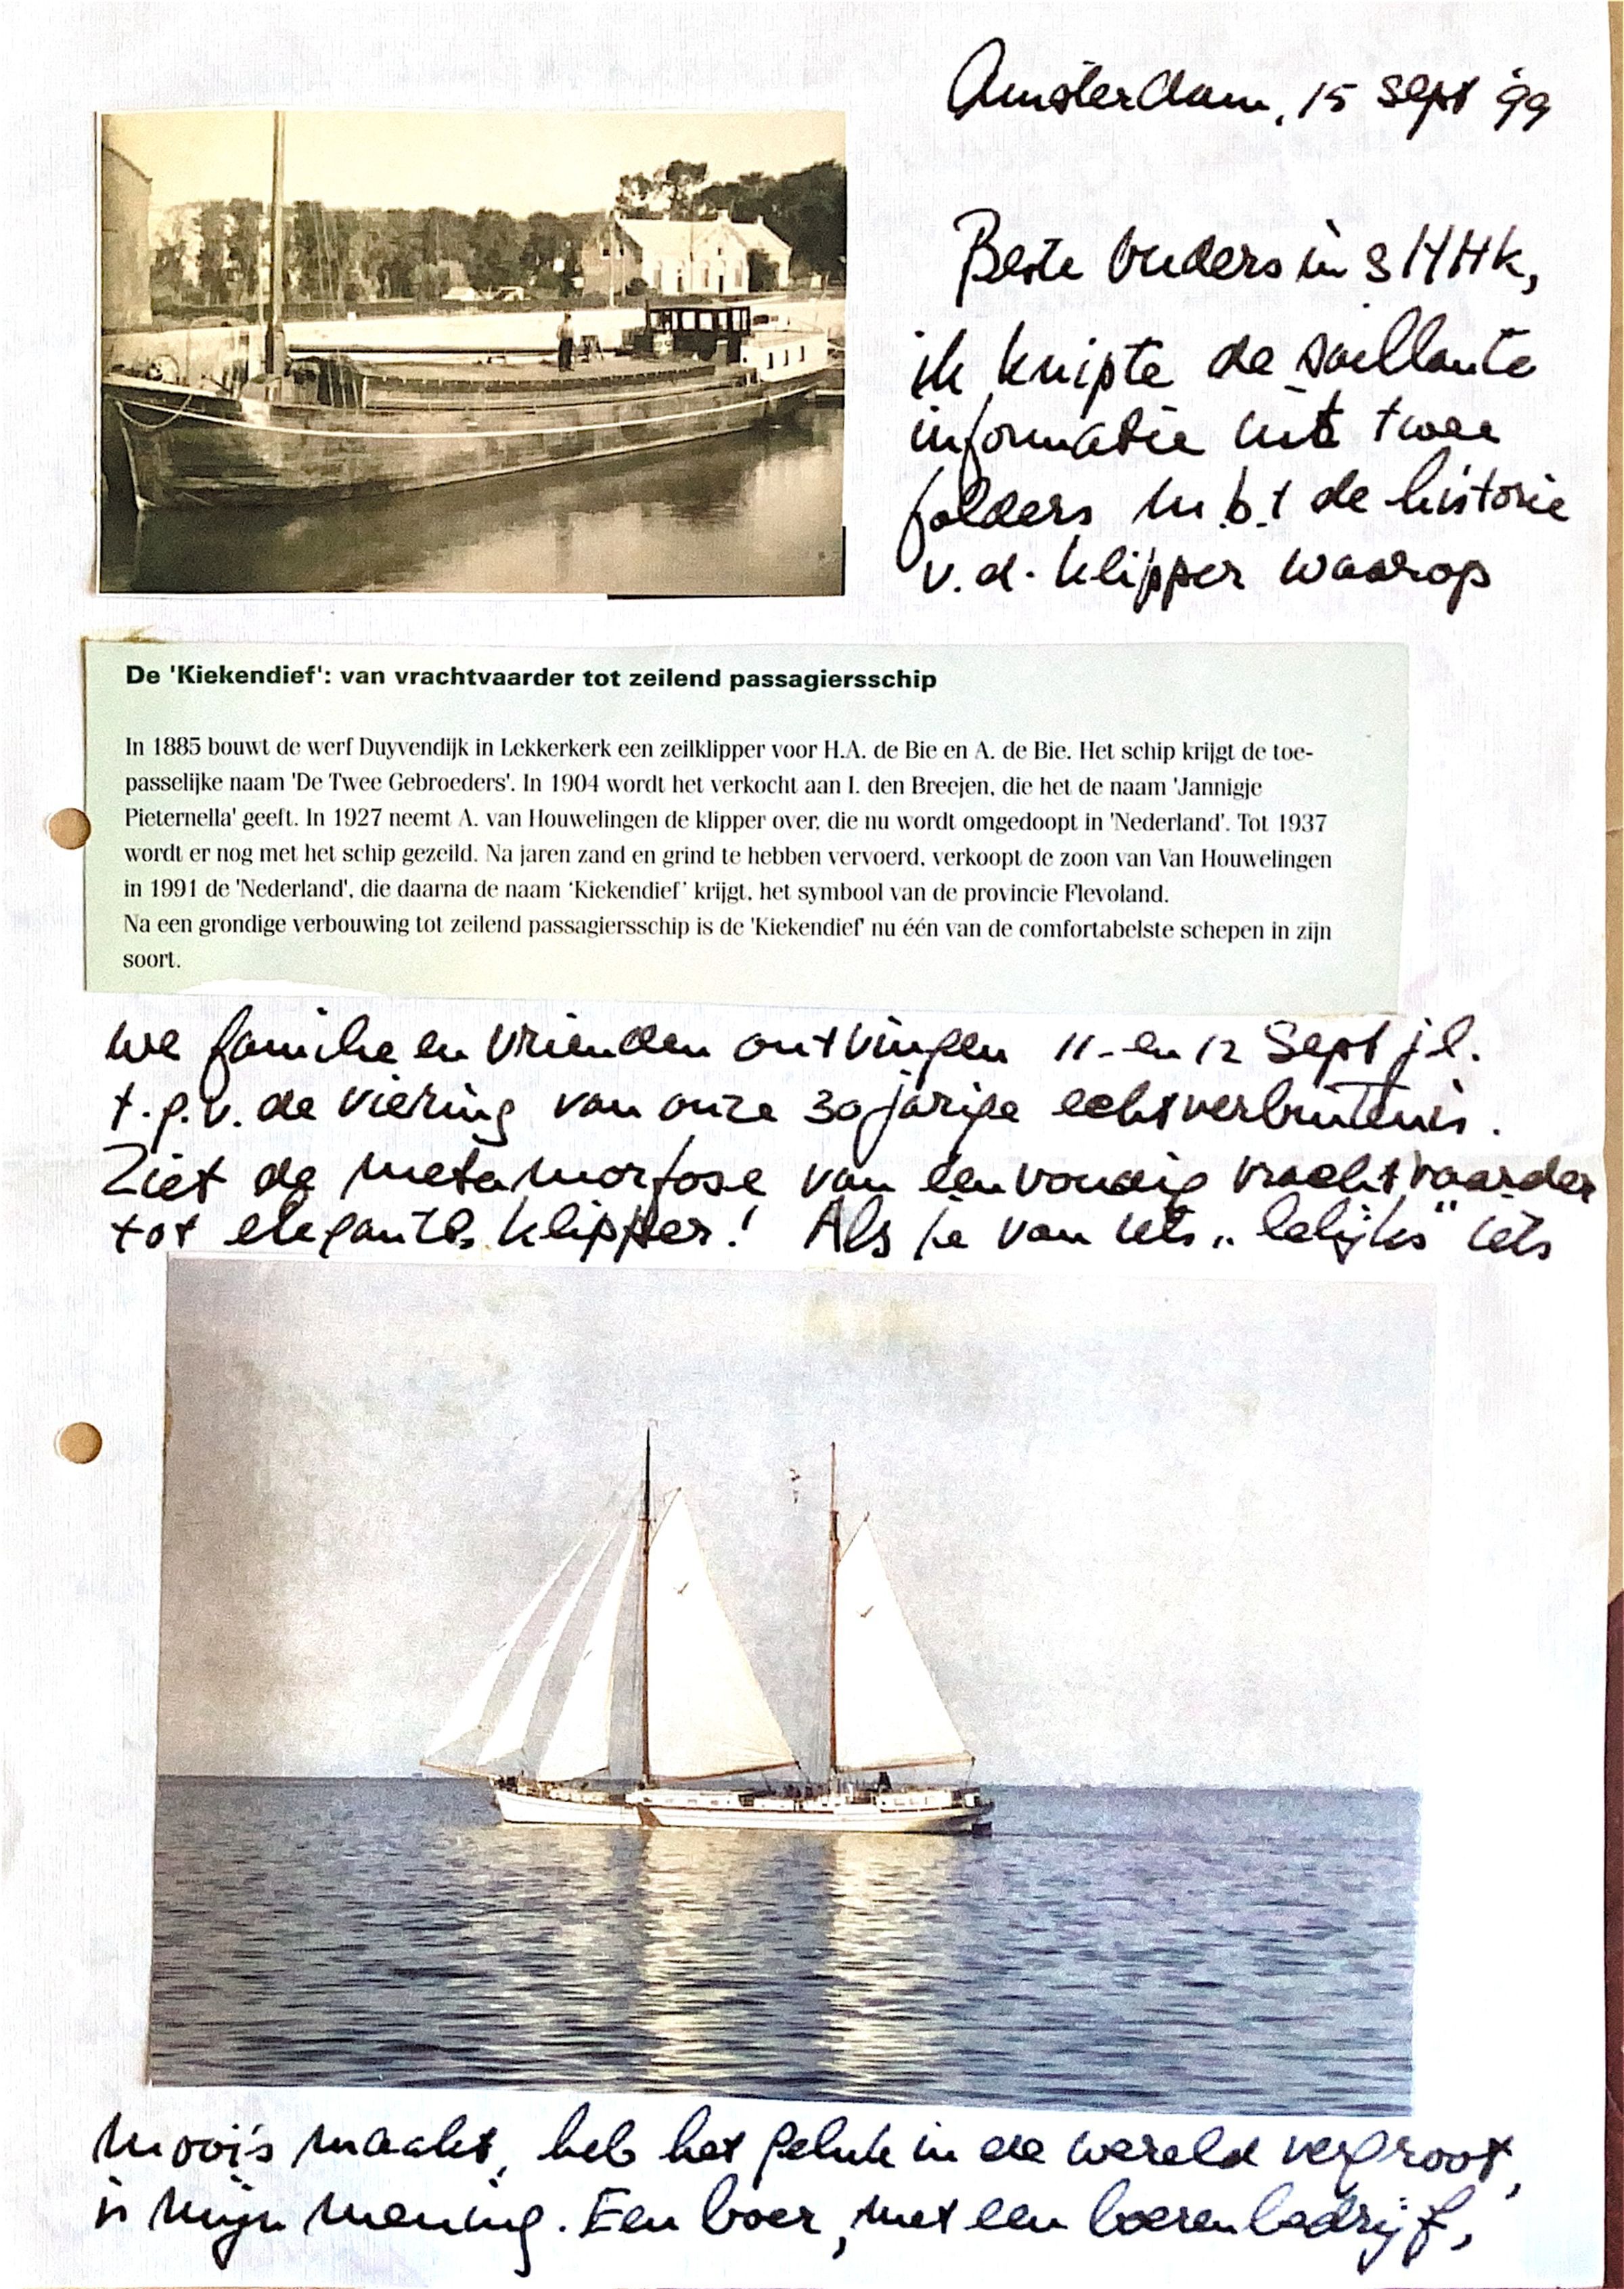 Amsterdam, 15 sept '99
Beste Ouders in sHHk,
ik knipte de saillante
informatie uit twee
folders m.b.t de historie
v.d. klipper waarop
De 'Kiekendief': van vrachtvaarder tot zeilend passagiersschip
In 1885 bouwt de werf Duyvendijk in Lekkerkerk een zeilklipper voor H.A. de Bie en A. de Bie. Het schip krijgt de toe-
passelijke naam 'De Twee Gebroeders'. In 1904 wordt het verkocht aan I. den Breejen, die het de naam 'Jannigje
Pieternella' geeft. In 1927 neemt A. van Houwelingen de klipper over, die nu wordt omgedoopt in 'Nederland'. Tot 1937
wordt er nog met het schip gezeild. Na jaren zand en grind te hebben vervoerd, verkoopt de zoon van Van Houwelingen
in 1991 de 'Nederland', die daarna de naam 'Kiekendief' krijgt, het symbool van de provincie Flevoland.
Na een grondige verbouwing tot zeilend passagiersschip is de 'Kiekendief' nu één van de comfortabelste schepen in zijn
soort.
we familie en vrienden ontvingen 11- en 12 Sept jl.
t.g.v. de viering van onze 30 jarige echtverbintenis.
Ziet de metamorfose van eenvoudig vrachtvaarder
tot elegante klipper! Als je van iets „lelijks" iets
moois maakt, heb het geluk in de wereld vergroot,
is mijn mening. Een boer, met een boerenbedrijf,